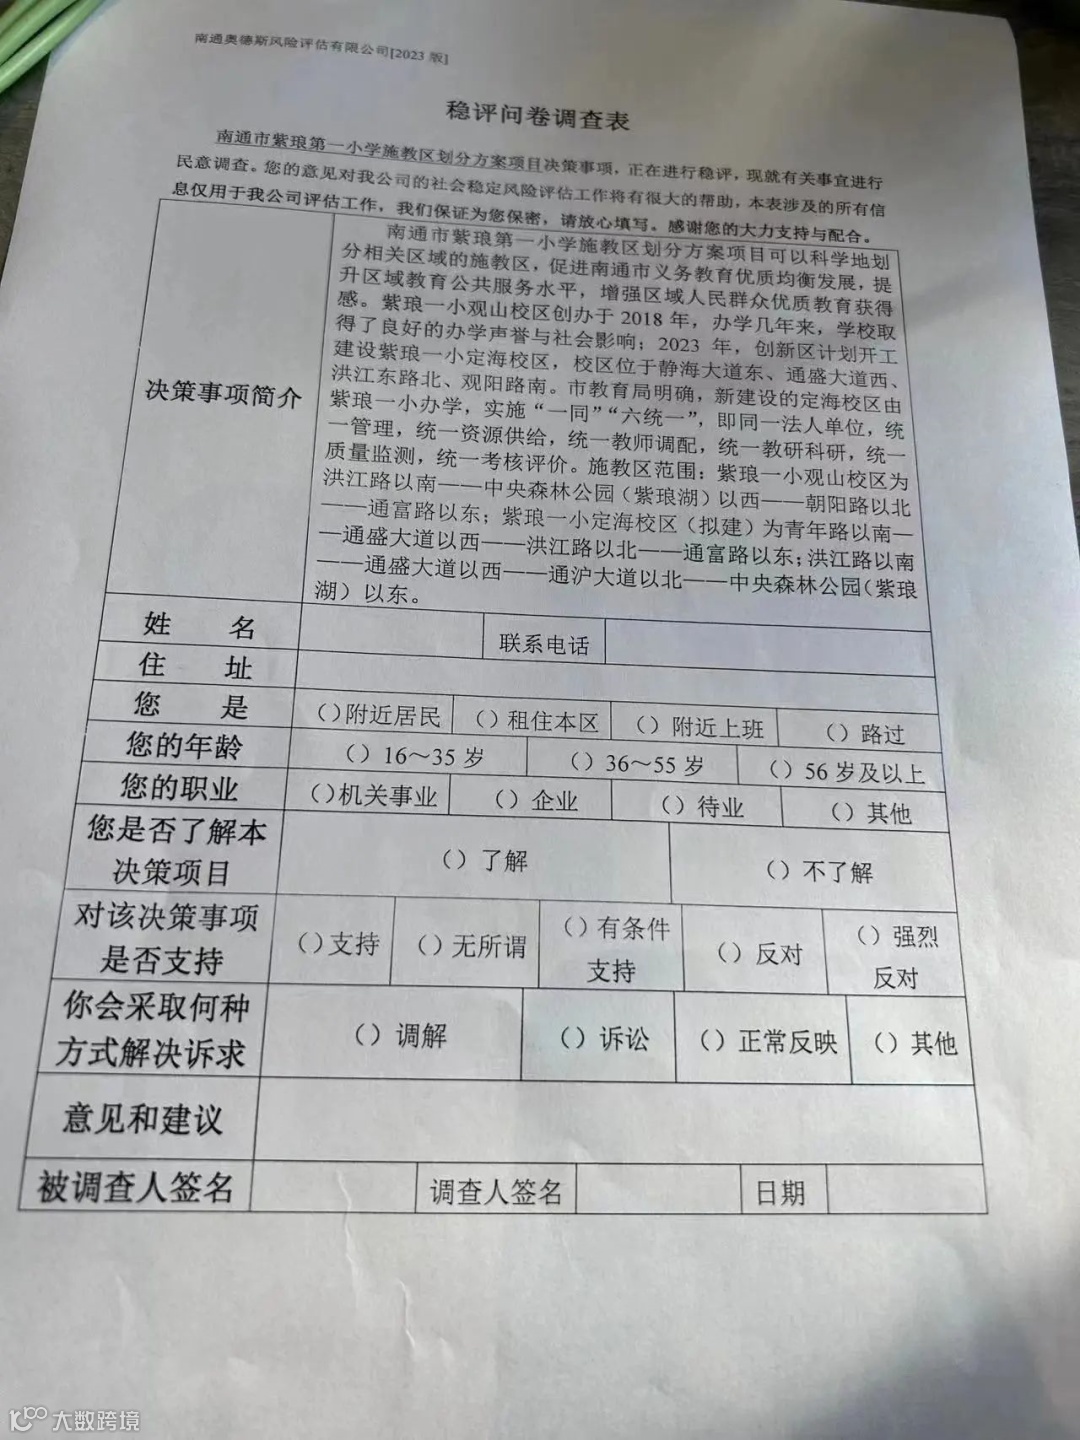 南通奥德斯风险评估有限公司[2023 版]
稳评问卷调查表
南通市紫琅第一小学施教区划分方案项目决策事项，正在进行稳评，现就有关事宜进行
民意调查。您的意见对我公司的社会稳定风险评估工作将有很大的帮助，本表涉及的所有信
息仅用于我公司评估工作，我们保证为您保密，请放心填写。感谢您的大力支持与配合。
决策事项简介
南通市紫琅第一小学施教区划分方案项目可以科学地划
分相关区域的施教区，促进南通市义务教育优质均衡发展，提
升区域教育公共服务水平，增强区域人民群众优质教育获得
感。紫琅一小观山校区创办于 2018 年，办学几年来，学校取
得了良好的办学声誉与社会影响；2023 年，创新区计划开工
建设紫琅一小定海校区，校区位于静海大道东、通盛大道西、
洪江东路北、观阳路南。市教育局明确，新建设的定海校区由
紫琅一小办学，实施“一同”“六统一”，即同一法人单位，统
一管理，统一资源供给，统一教师调配，统一教研科研，统一
质量监测，统一考核评价。施教区范围：紫琅一小观山校区为
洪江路以南——中央森林公园（紫琅湖）以西——朝阳路以北
——通富路以东；紫琅一小定海校区（拟建）为青年路以南—
—通盛大道以西——洪江路以北——通富路以东；洪江路以南
——通盛大道以西——通沪大道以北——中央森林公园（紫琅
湖）以东。
姓 名 联系电话
住 址
您 是 （）附近居民 （）租住本区 （）附近上班 （）路过
您的年龄 （）16～35 岁 （）36～55 岁 （）56 岁及以上
您的职业 （）机关事业 （）企业 （）待业 （）其他
您是否了解本
决策项目
（）了解 （）不了解
对该决策事项
是否支持
（）支持 （）无所谓
（）有条件
支持
（）反对
（）强烈
反对
你会采取何种
方式解决诉求
（）调解 （）诉讼 （）正常反映 （）其他
意见和建议
被调查人签名 调查人签名 日期
大数跨境